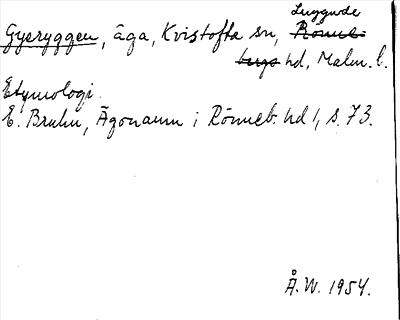 Luggude
Gyeryggen, äga, Kvistofta sn, Rönne-
bergs hd, Malm. l.
Etymologi.
E. Bruhn, Ägonamn i Rönneb. hd 1, s. 73.
Å. W. 1954.